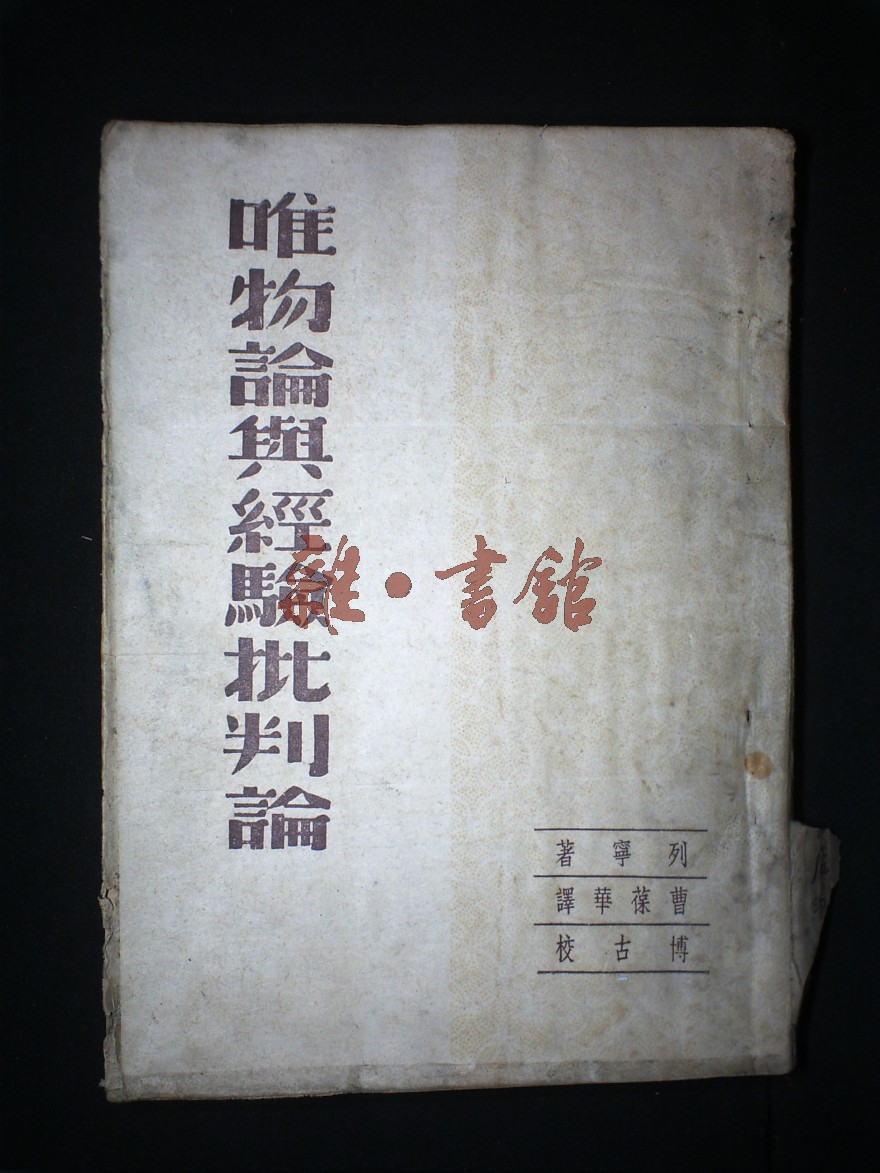 唯物論與經驗批判論
雜·書館
列寧著
曹葆華譯
博古校